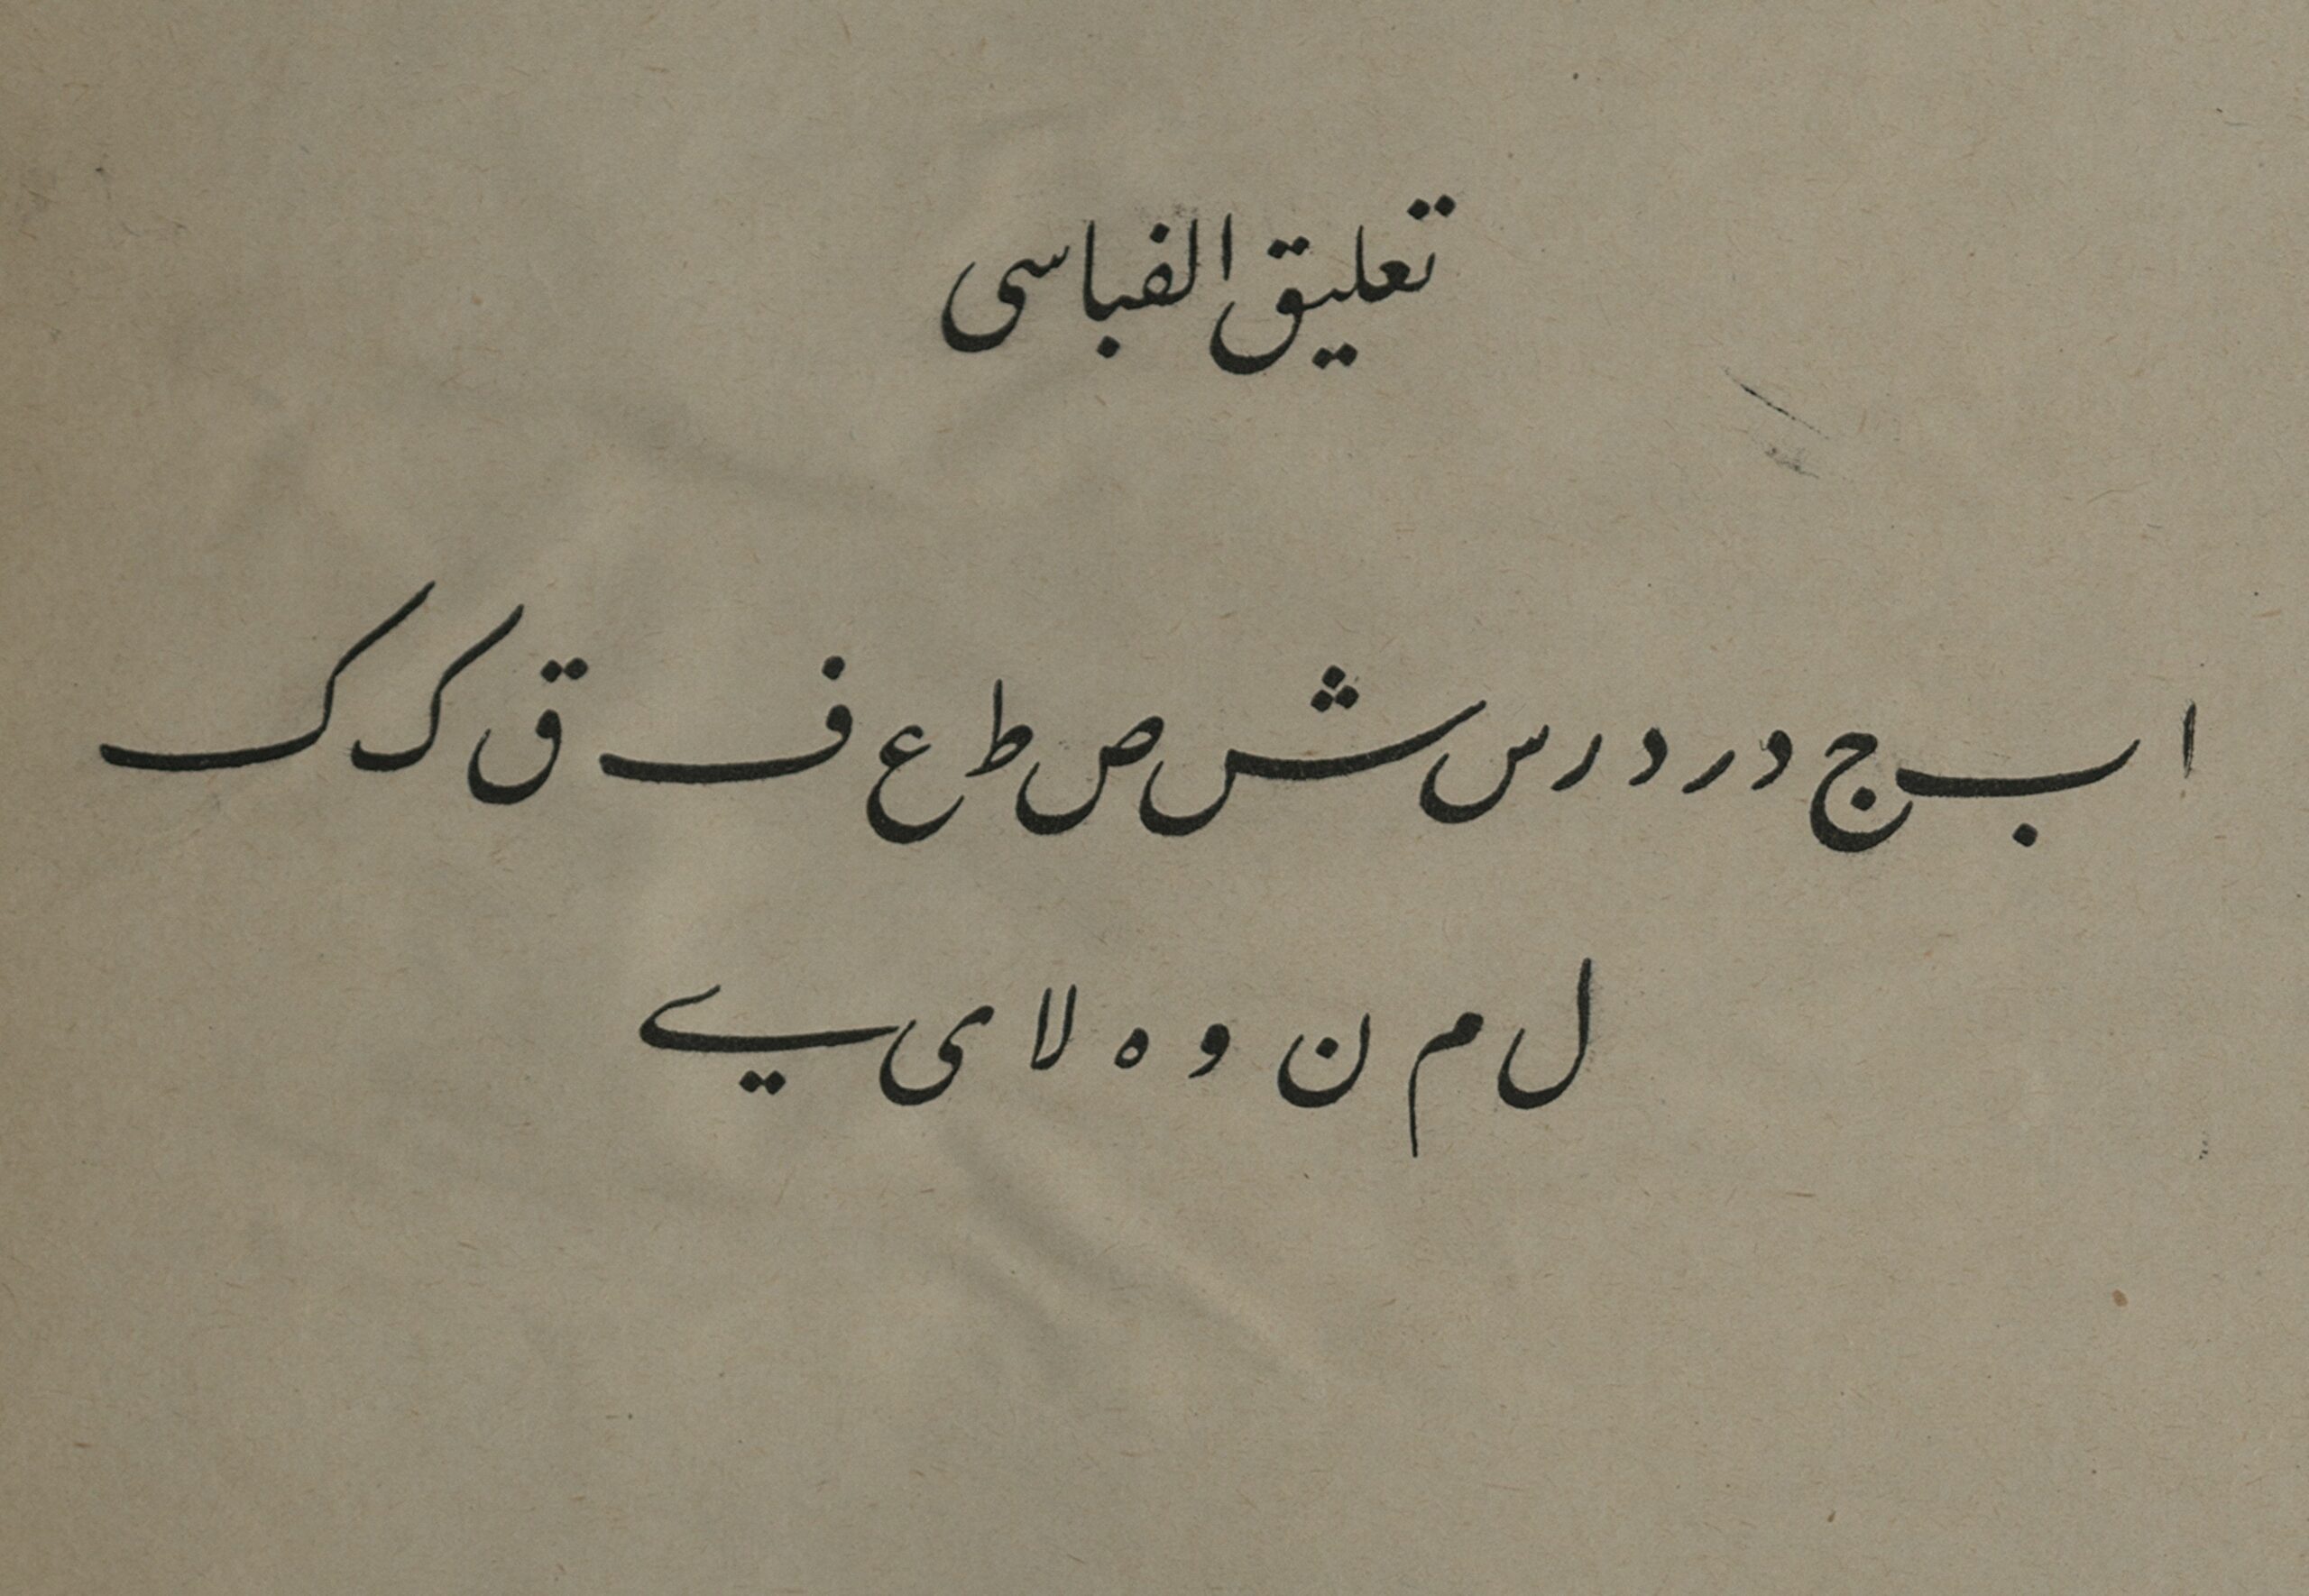 تعليق الفباسى
ا ب ج د ر د ر س ش ص ط ع ف ق ک ک
ل م ن و ه لا ى ے